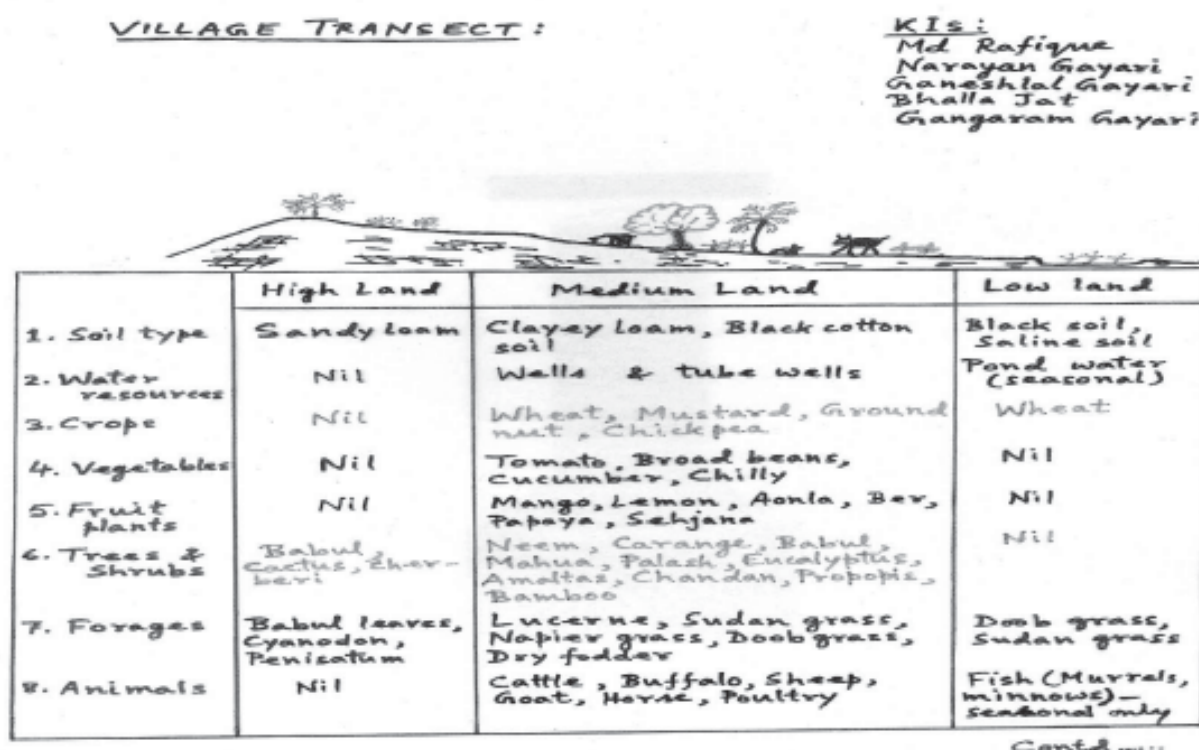 VILLAGE TRANSECT:
KIs:
Md Rafique
Narayan Gayari
Ganeshlal Gayari
Bhalla Jat
Gangaram Gayari
High Land Medium Land Low land
1. Soil type Sandy loam Clayey loam, Black cotton soil Black soil, Saline soil
2. Water resources Nil Wells & tube wells Pond water (seasonal)
3. Crope Nil Wheat, Mustard, Ground nut, Chickpea Wheat
4. Vegetables Nil Tomato, Broad beans, Cucumber, Chilly Nil
5. Fruit plants Nil Mango, Lemon, Aonla, Ber, Papaya, Sehjana Nil
6. Trees & Shrubs Babul, Cactus, Zherberi Neem, Carange, Babul, Mahua, Palash, Eucalyptus, Amaltas, Chandan, Propopis, Bamboo Nil
7. Forages Babul leaves, Cyanodon, Penisatum Lucerne, Sudan grass, Napier grass, Doob grass, Dry fodder Doob grass, Sudan grass
8. Animals Nil Cattle, Buffalo, Sheep, Goat, Horse, Poultry Fish (Murrels, minnows)— seasonal only
Contd....